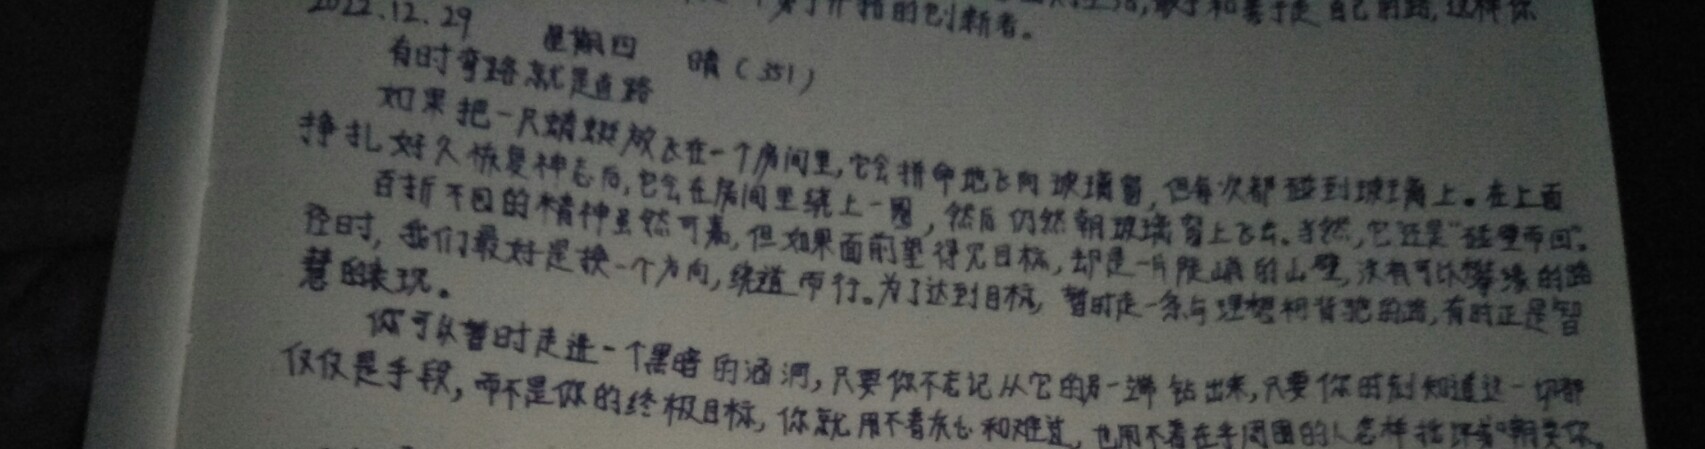 自己的路,这样你
开拓的创新者。
2022.12.29 星期四 晴(351)
有时弯路就是直路
如果把一只蜻蜓放飞在一个房间里,它会拼命地飞向玻璃窗,但每次都碰到玻璃上。在上面
挣扎好久恢复神志后,它会在房间里绕上一圈,然后仍然朝玻璃窗上飞去。当然,它还是“碰壁而回”。
百折不回的精神虽然可嘉,但如果面前望得见目标,却是一片陡峭的山壁,没有可以攀缘的路
径时,我们最好是换一个方向,绕道而行。为了达到目标,暂时走一条与理想相背驰的路,有时正是智
慧的表现。
你可以暂时走进一个黑暗的涵洞,只要你不忘记从它的另一端钻出来,只要你时刻知道这一切都
仅仅是手段,而不是你的终极目标,你就用不着灰心和难过,也用不着在乎周围的人怎样指责或嘲笑你。